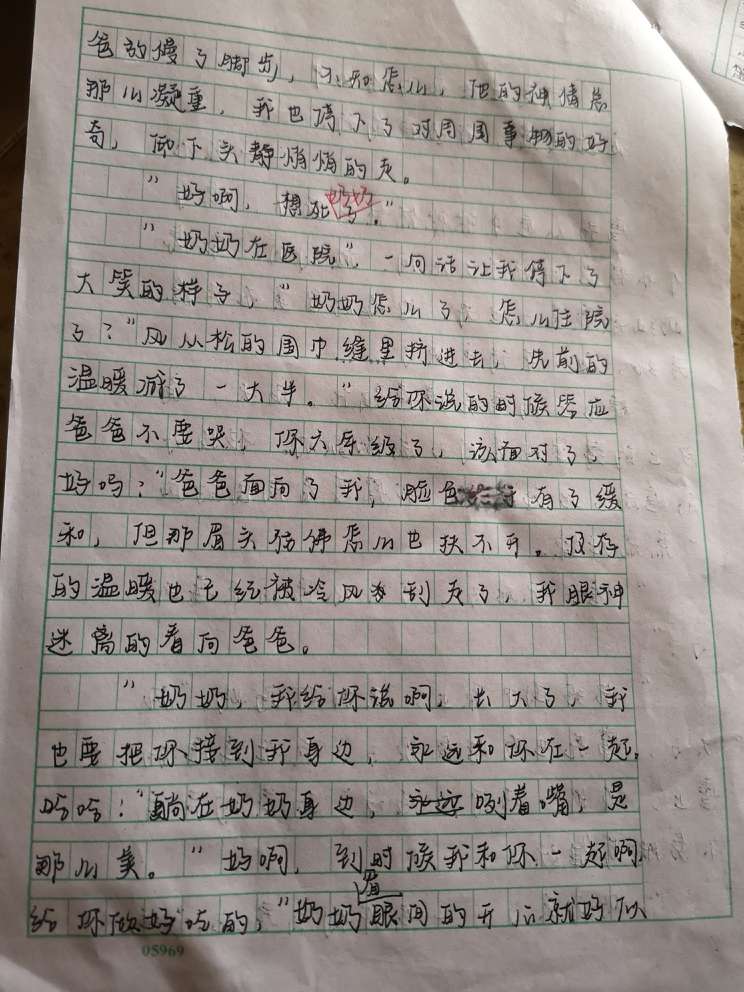 爸放慢了脚步，不知怎么，他的神情总
那么凝重，我也停下了对周围事物的好
奇，低下头静悄悄的走。
"好啊，想死奶奶了。"
"奶奶在医院"，一句话让我停下了
大笑的样子，"奶奶怎么了，怎么住院
了？"风从松的围巾缝里挤进去，先前的
温暖减了一大半。"给你说的时候答应
爸爸不要哭，你六年级了，该面对了，
好吗？"爸爸面向了我，脸色 有了缓
和，但那眉头仿佛怎么也扶不开。仅存
的温暖也已经被冷风 到走了，我眼神
迷离的看向爸爸。
"奶奶，我给你说啊，长大了，我
也要把你接到我身边，永远和你在一起，
哈哈！"躺在奶奶身边，永远咧着嘴，是
那么美。"好啊，到时候我和你一起啊
给你做好吃的，"奶奶眉眼间的开心就好似
05969